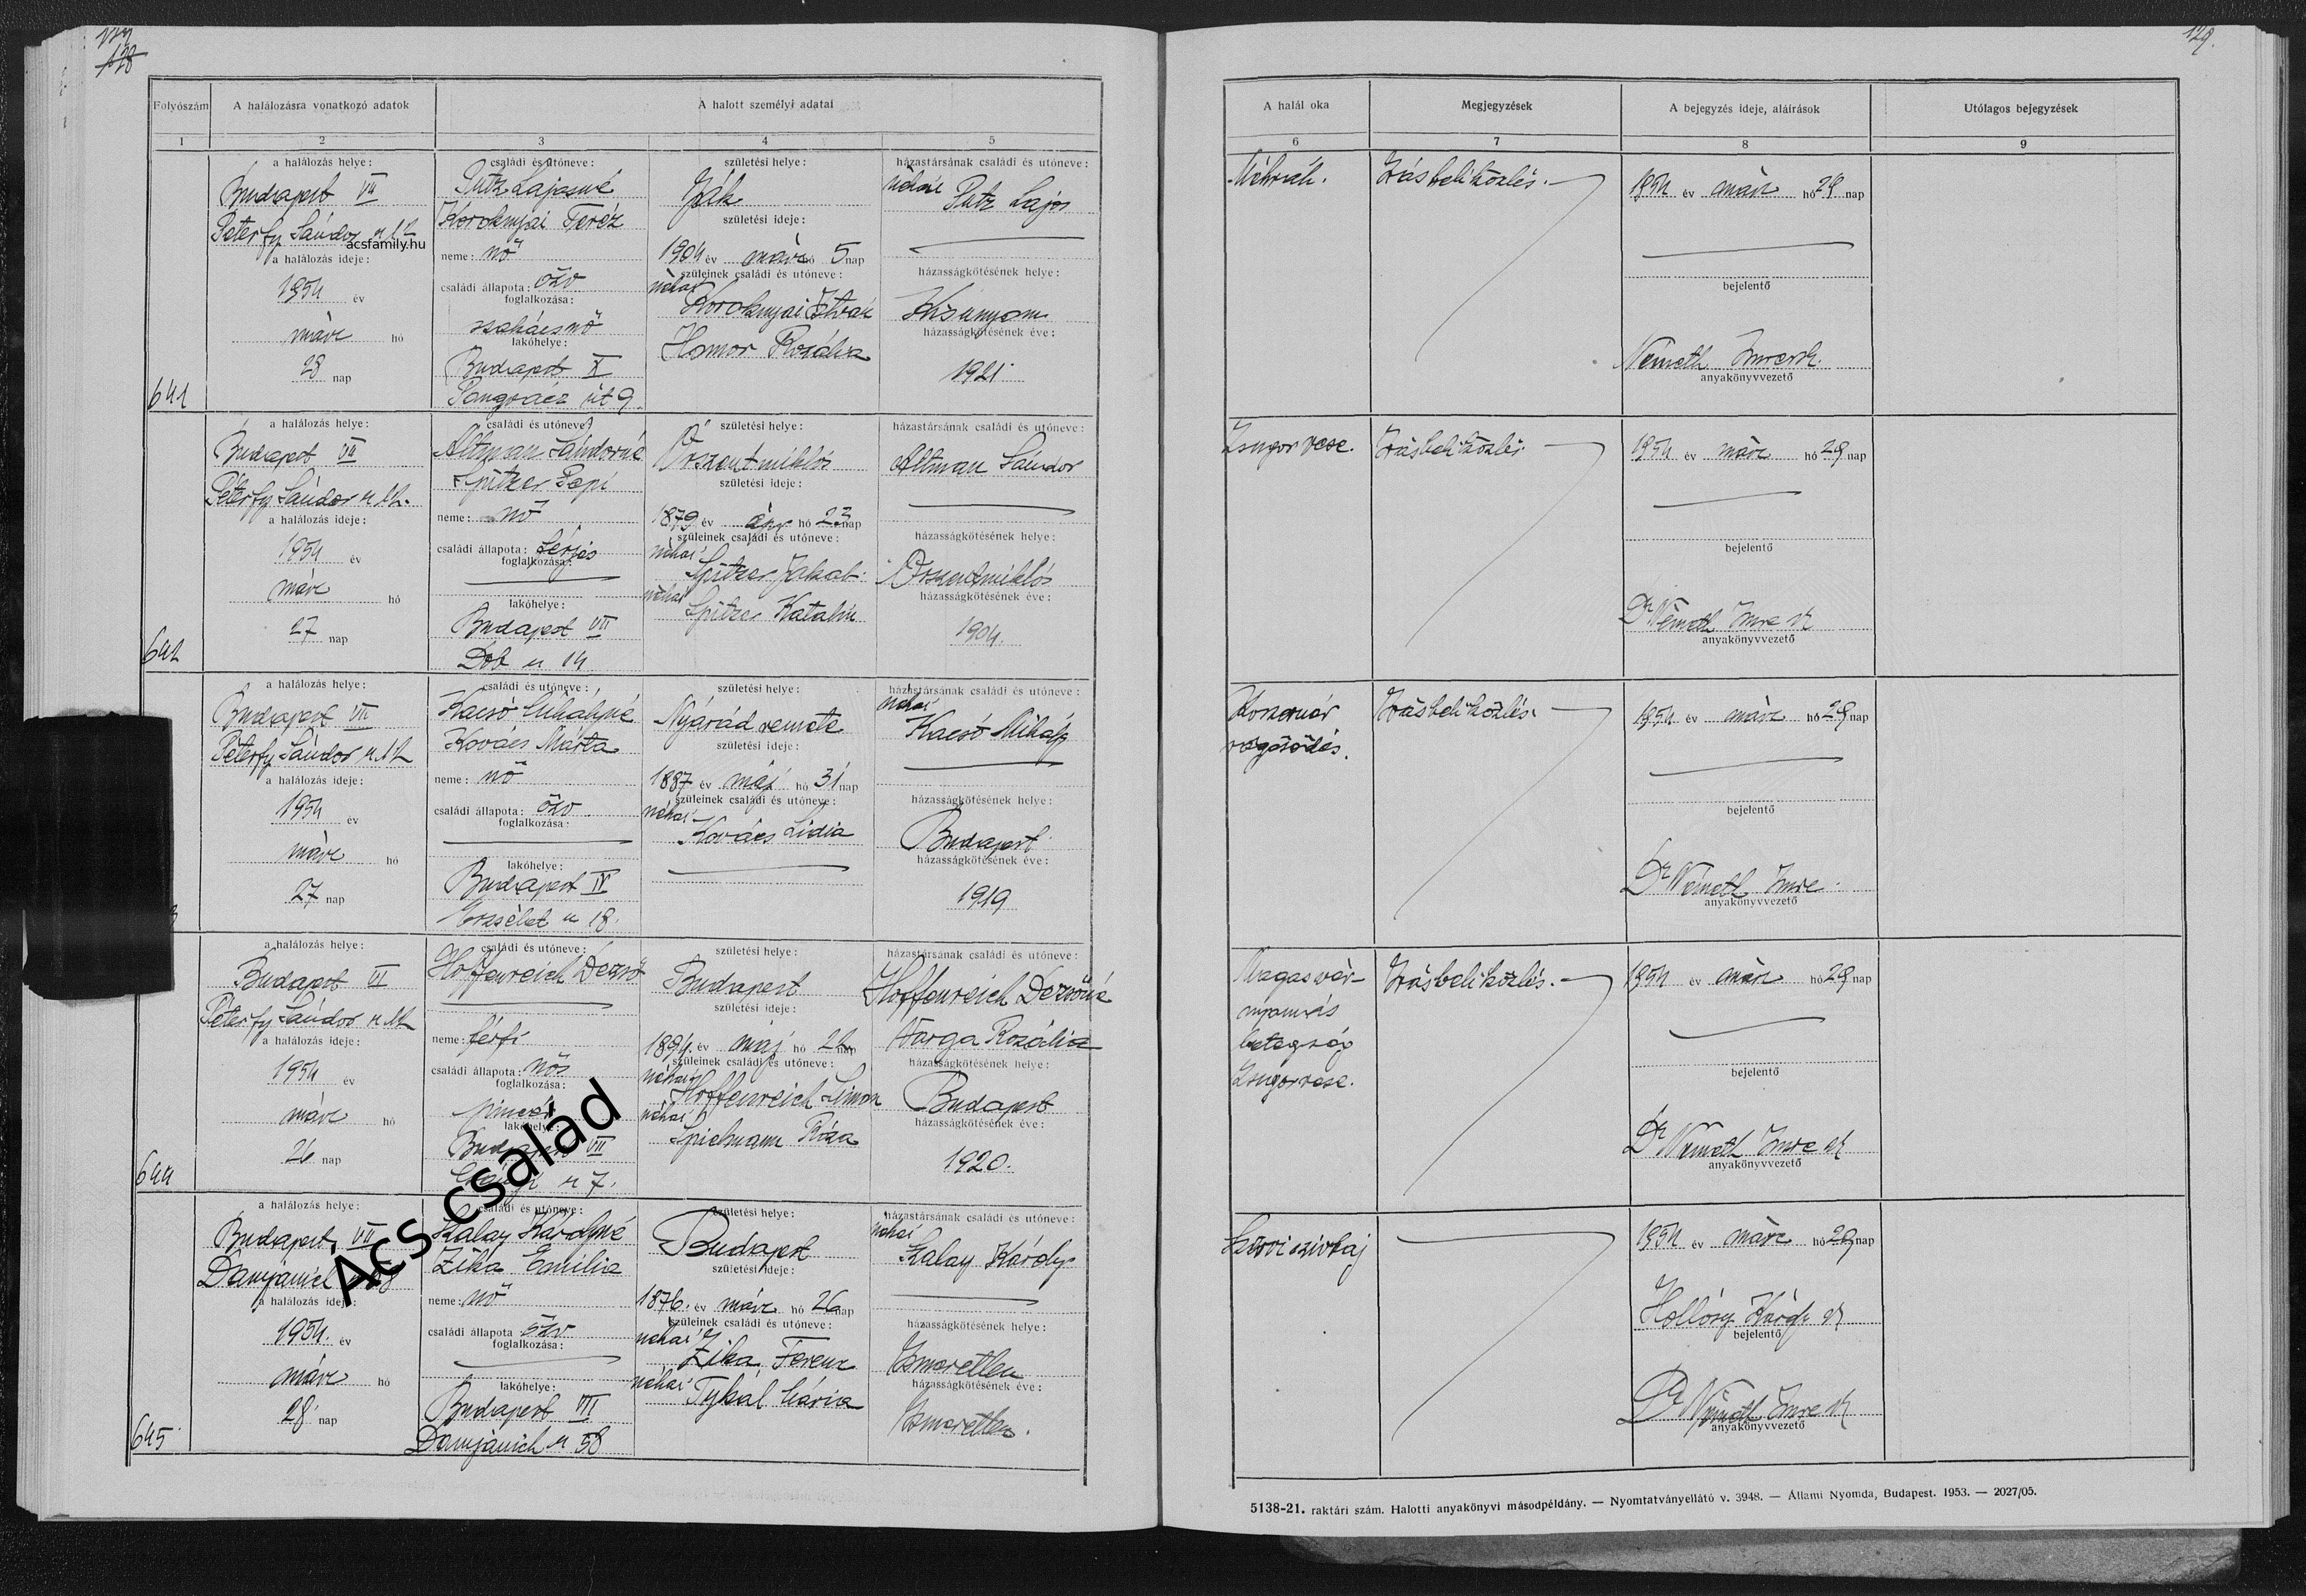 129
128
129.
Folyószám
A halálozásra vonatkozó adatok
A halott személyi adatai
1
2
3
4
5
a halálozás helye:
Budapest VII
Péterfy Sándor u 12
acsfamily.hu
a halálozás ideje:
1954 év
márc hó
28 nap
641
családi és utóneve:
Putz Lajosné
Horoknyai Teréz
neme: nő
családi állapota: özv
foglalkozása:
szakácsnő
lakóhelye:
Budapest X
Pongrácz út 9.
születési helye:
Ják
születési ideje:
1904 év márc hó 5 nap
szüleinek családi és utóneve:
néhai
Horoknyai István
Homor Rozália
házastársának családi és utóneve:
néhai Putz Lajos
házasságkötésének helye:
Kisunyom
házasságkötésének éve:
1921
a halálozás helye:
Budapest VII
Péterfy Sándor u 12.
a halálozás ideje:
1954 év
márc hó
27 nap
642
családi és utóneve:
Altman Sándorné
Spitzer Pepi
neme: nő
családi állapota: férjes
foglalkozása:
lakóhelye:
Budapest VII
Dob u 14
születési helye:
Őrszentmiklós
születési ideje:
1879 év ápr hó 23 nap
szüleinek családi és utóneve:
néhai
Spitzer Jakab
néhai
Spitzer Katalin
házastársának családi és utóneve:
Altman Sándor
házasságkötésének helye:
Őrszentmiklós
házasságkötésének éve:
1904.
a halálozás helye:
Budapest VII
Péterfy Sándor u 12
a halálozás ideje:
1954 év
márc hó
27 nap
3
családi és utóneve:
Kacsó Mihályné
Kovács Márta
neme: nő
családi állapota: özv.
foglalkozása:
lakóhelye:
Budapest IV
Erzsébet u 18.
születési helye:
Nyárád remete
születési ideje:
1887 év máj hó 31 nap
szüleinek családi és utóneve:
néhai
Kovács Lidia
házastársának családi és utóneve:
néhai
Kacsó Mihály
házasságkötésének helye:
Budapest
házasságkötésének éve:
1919
a halálozás helye:
Budapest VII
Péterfy Sándor u 12
a halálozás ideje:
1954 év
márc hó
26 nap
644
családi és utóneve:
Hoffenreich Dezső
neme: férfi
családi állapota: nős
foglalkozása:
pincér
lakóhelye:
Budapest VII
u 7.
születési helye:
Budapest
születési ideje:
1894. év máj hó 26 nap
szüleinek családi és utóneve:
néhai
Hoffenreich Simon
néhai
Spielmann Róza
házastársának családi és utóneve:
Hoffenreich Dezsőné
Varga Rozália
házasságkötésének helye:
Budapest
házasságkötésének éve:
1920.
Ács család
a halálozás helye:
Budapest VII
Damjanich 58
a halálozás ideje:
1954. év
márc hó
28 nap
645
családi és utóneve:
Kalay Károlyné
Zika Emilia
neme: nő
családi állapota özv
foglalkozása:
lakóhelye:
Budapest VII
Damjanich u 58
születési helye:
Budapest
születési ideje:
1876. év márc hó 26 nap
szüleinek családi és utóneve:
néhai
Zika Ferenc
néhai Tykál Mária
házastársának családi és utóneve:
néhai
Kalay Károly
házasságkötésének helye:
Ismeretlen
házasságkötésének éve:
Ismeretlen.
A halál oka
Megjegyzések
A bejegyzés ideje, aláírások
Utólagos bejegyzések
6
7
8
9
Méhrák.
Írásbeli közlés.
1954 év márc hó 29 nap
bejelentő
Németh Imre sk.
anyakönyvvezető
Zsugorvese.
Írásbeli közlés.
1954 év márc hó 29 nap
bejelentő
Dr Németh Imre sk
anyakönyvvezető
Koszorúér
rögösödés.
Írásbeli közlés.
1954 év márc hó 29 nap
bejelentő
Dr Németh Imre
anyakönyvvezető
Magas vér-
nyomás
betegség
Zsugorvese.
Írásbeli közlés.
1954 év márc hó 29 nap
bejelentő
Dr Németh Imre sk
anyakönyvvezető
Szervi szívbaj
1954 év márc hó 29 nap
Hollósy Károly sk
bejelentő
Dr Németh Imre sk
anyakönyvvezető
5138-21. raktári szám. Halotti anyakönyvi másodpéldány. — Nyomtatványellátó v. 3948. — Állami Nyomda, Budapest. 1953. — 2027/05.